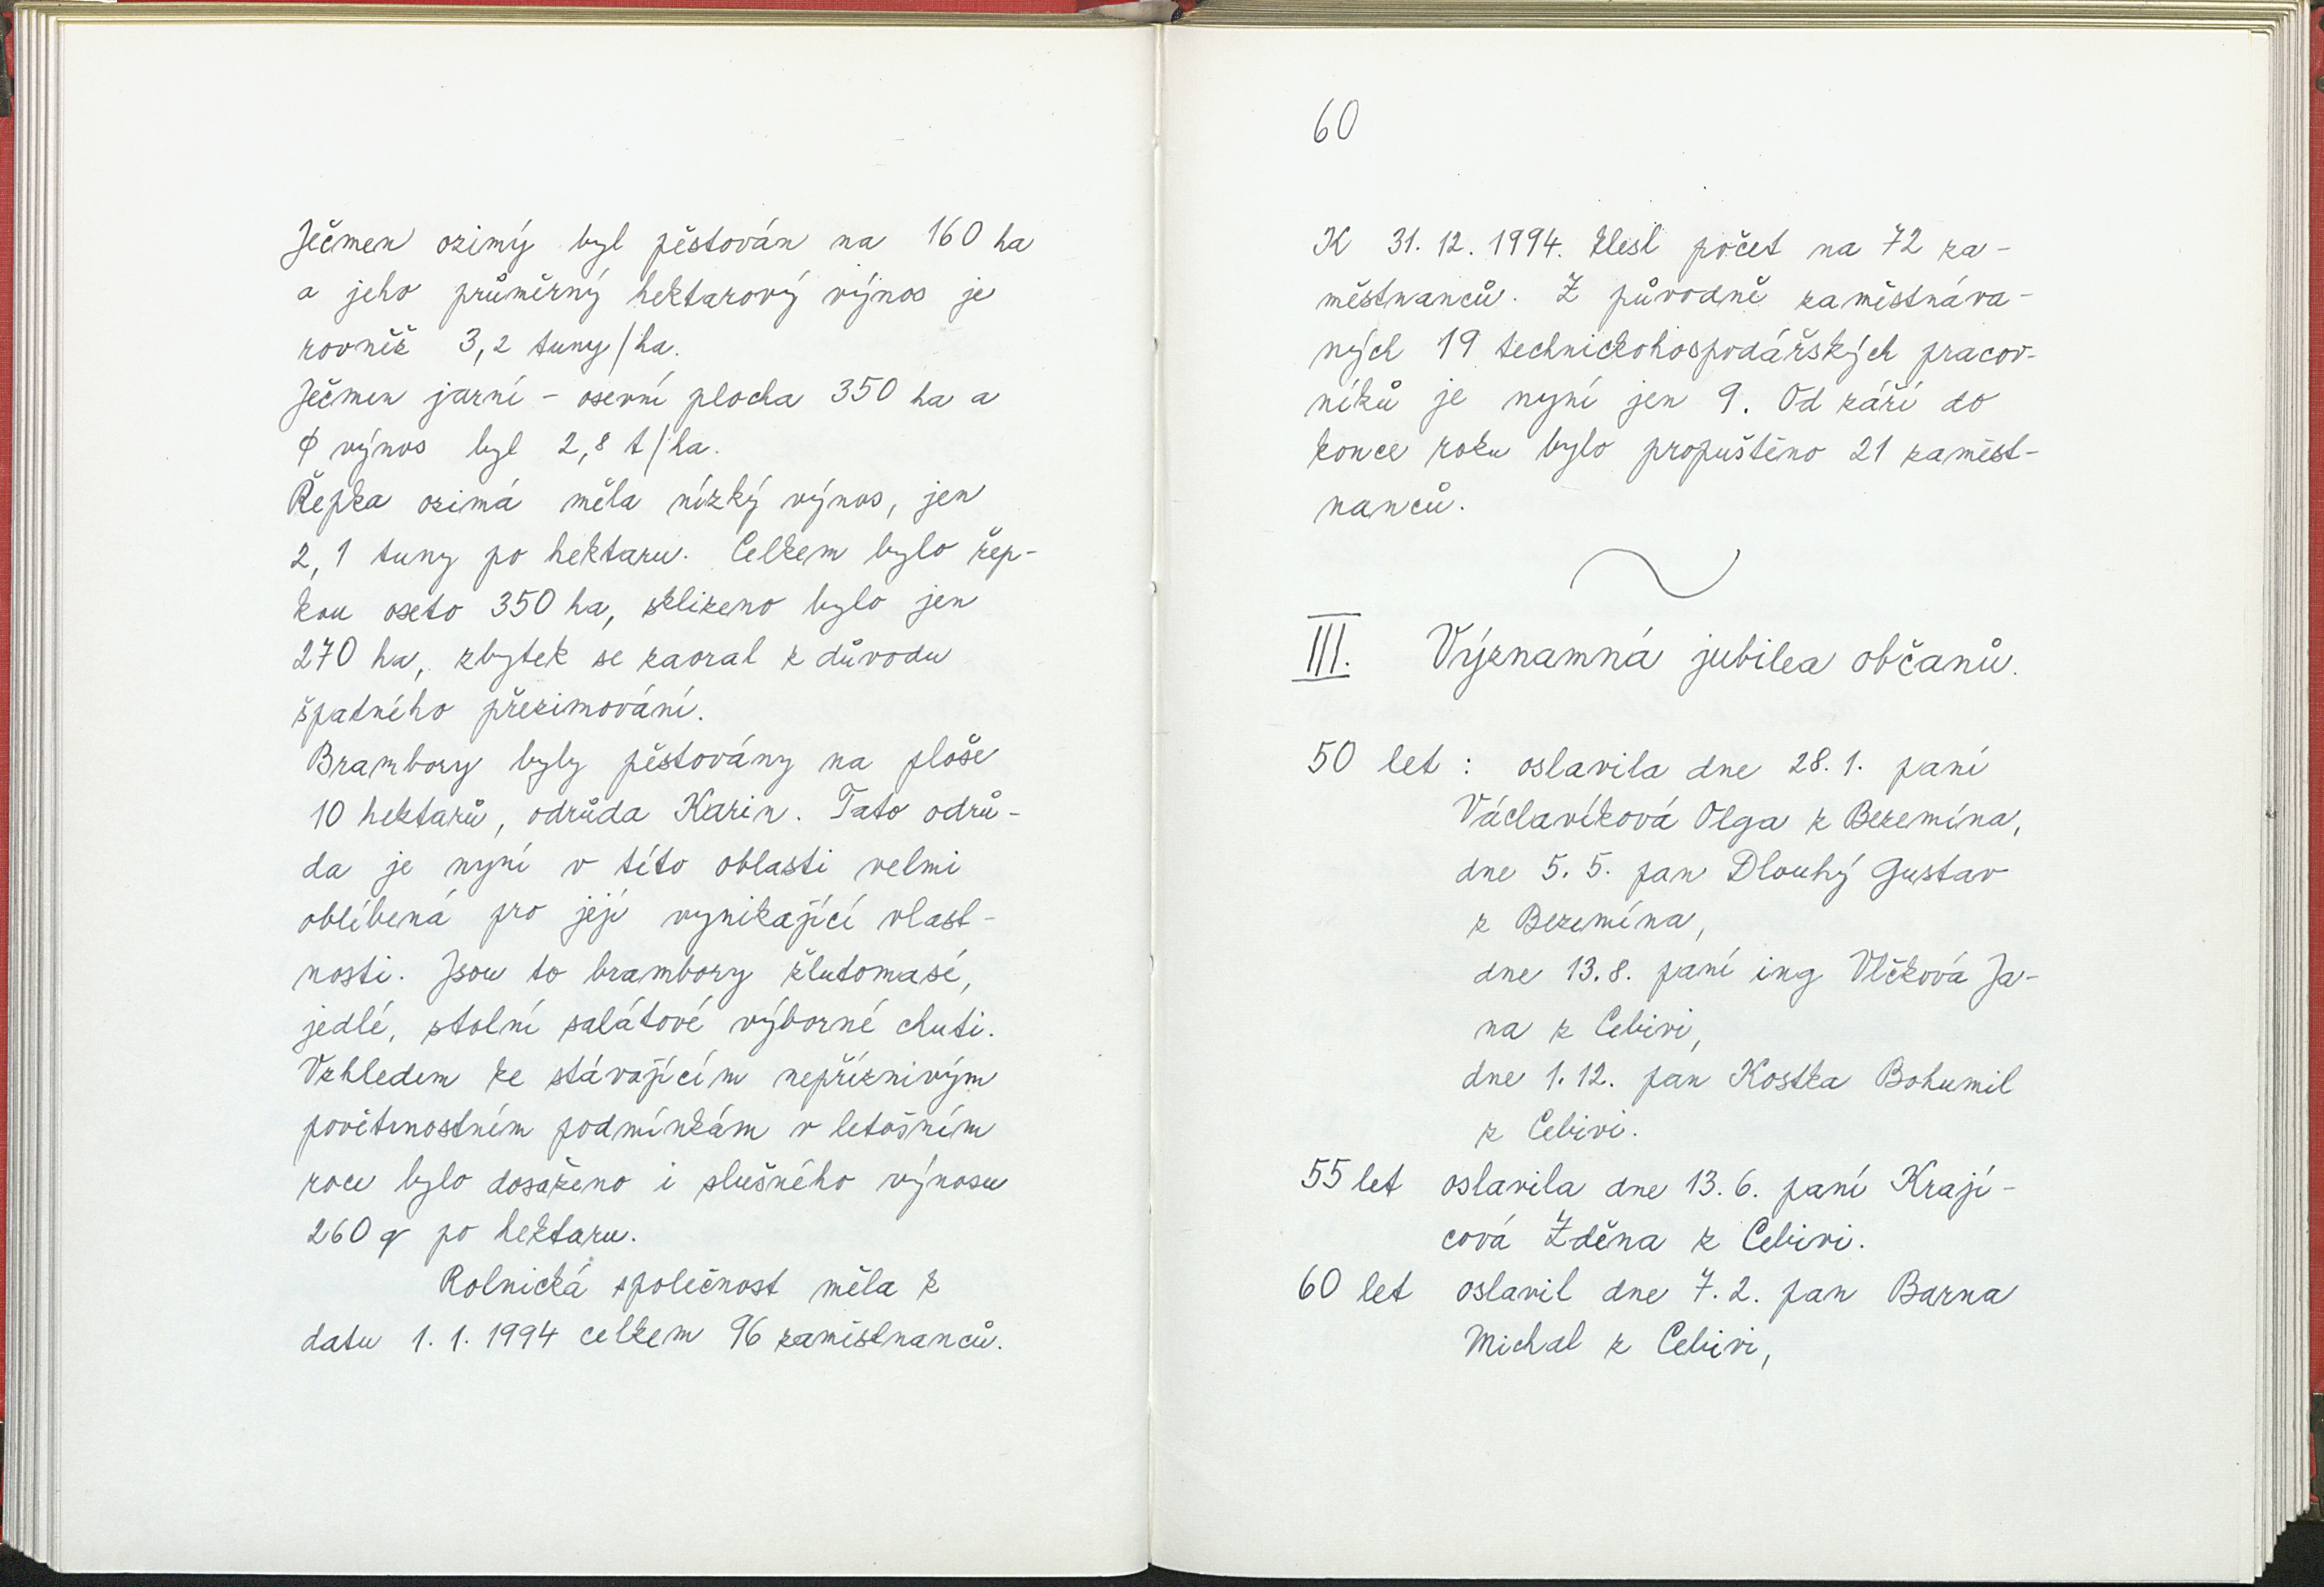 Ječmen ozimý byl pěstován na 160 ha
a jeho průměrný hektarový výnos je
rovněž 3,2 tuny/ha.
Ječmen jarní - osevní plocha 350 ha a
ϕ výnos byl 2,8 t/ha.
Řepka ozimá měla nízký výnos, jen
2,1 tuny po hektaru. Celkem bylo řep-
kou oseto 350 ha, sklizeno bylo jen
270 ha, zbytek se zaoral z důvodu
špatného přezimování.
Brambory byly pěstovány na ploše
10 hektarů, odrůda Karin. Tato odrů-
da je nyní v této oblasti velmi
oblíbená pro její vynikající vlast-
nosti. Jsou to brambory žlutomasé,
jedlé, stolní salátové výborné chuti.
Vzhledem ke stávajícím nepříznivým
povětrnostním podmínkám v letošním
roce bylo dosaženo i slušného výnosu
260 q po hektaru.
Rolnická společnost měla k
datu 1. 1. 1994 celkem 96 zaměstnanců.
60
K 31. 12. 1994. klesl počet na 72 za-
městnanců. Z původně zaměstnáva-
ných 19 technickohospodářských pracov-
níků je nyní jen 9. Od září do
konce roku bylo propuštěno 21 zaměst-
nanců.
III. Významná jubilea občanů.
50 let : oslavila dne 28. 1. paní
Václavíková Olga z Bezemína,
dne 5. 5. pan Dlouhý Gustav
z Bezemína,
dne 13. 8. paní ing Vlčková Ja-
na z Cebivi,
dne 1. 12. pan Kostka Bohumil
z Cebivi.
55 let oslavila dne 13. 6. paní Krají-
cová Zděna z Cebivi.
60 let oslavil dne 7. 2. pan Barna
Michal z Cebivi,